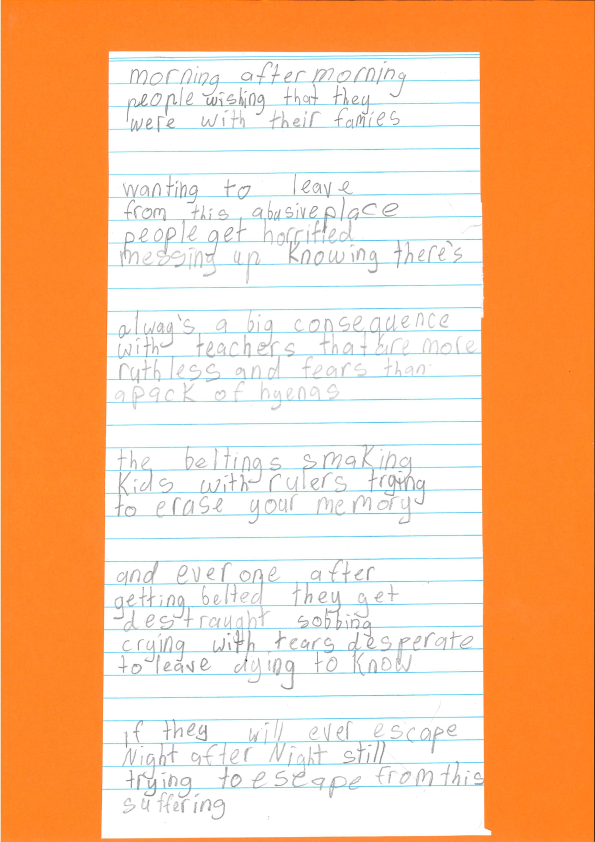 morning after morning
people wishing that they
were with their famies
wanting to leave
from this abusive place
people get horrified
messing up knowing there's
alway's a big consequence
with teachers that are more
ruthless and fears than
a pack of hyenas
the beltings smaking
kids with rulers trying
to erase your memory
and ever one after
getting belted they get
destraught sobbing
crying with tears desperate
to leave dying to know
if they will ever escape
Night after Night still
trying to escape from this
suffering